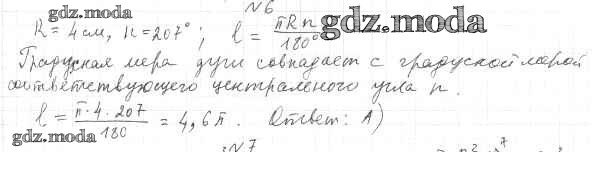 №6
gdz.moda
R = 4 см, n = 207°; l = πRn / 180°
gdz.moda
Градусная мера дуги совпадает с градусной мерой
соответствующего центрального угла n.
l = π·4·207 / 180 = 4,6π. Ответ: А)
gdz.moda
№7